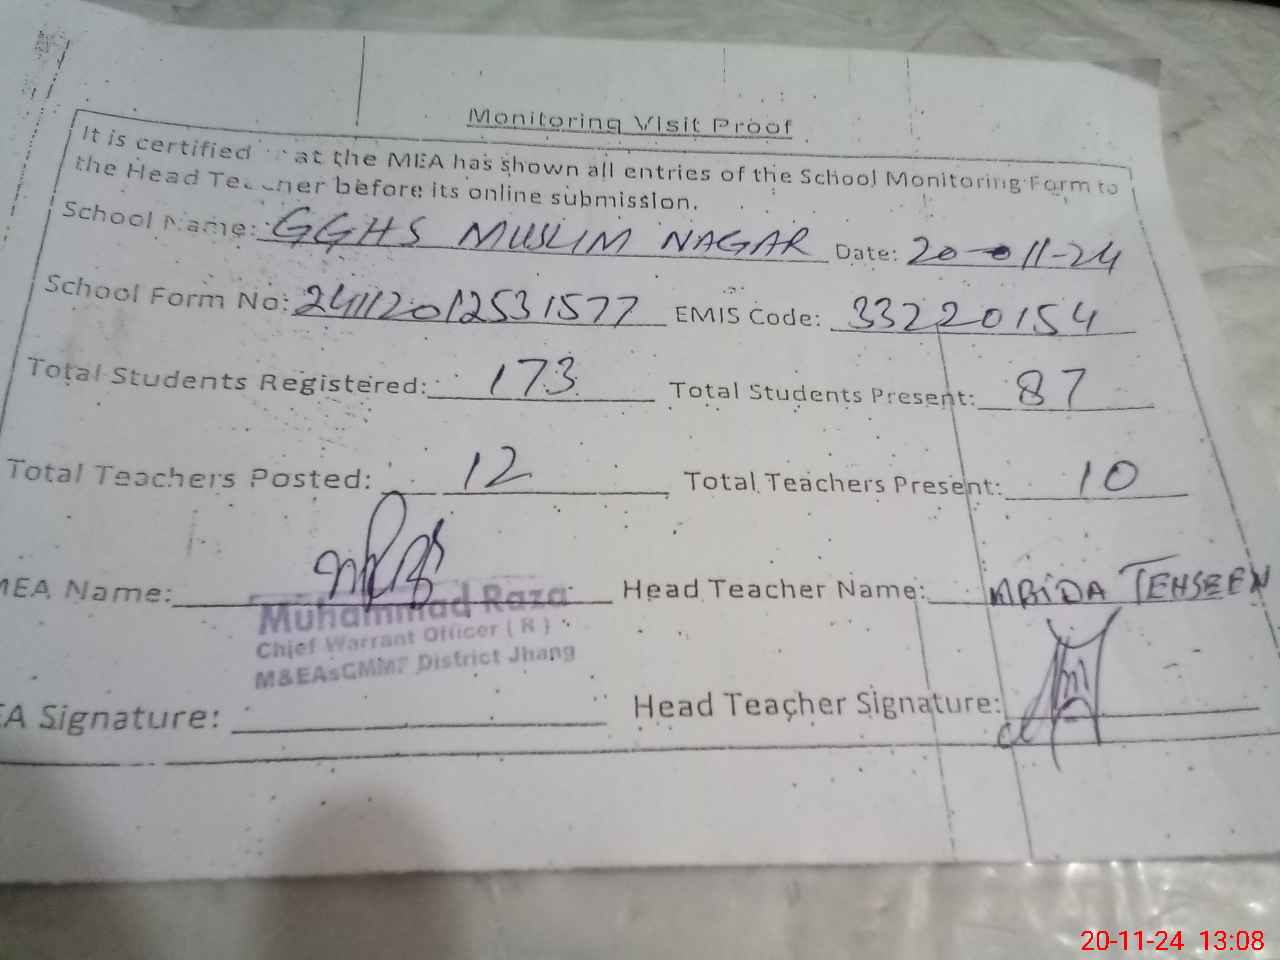 Monitoring Visit Proof
It is certified at the MEA has shown all entries of the School Monitoring Form to
the Head Teacher before its online submission.
School Name: GGHS MUSLIM NAGAR Date: 20-11-24
School Form No: 24112012531577 EMIS Code: 33220154
Total Students Registered: 173 Total Students Present: 87
Total Teachers Posted: 12 Total Teachers Present: 10
MEA Name: Head Teacher Name: ABIDA TEHSEEN
Muhammad Raza
Chief Warrant Officer ( R )
M&EAsCMMF District Jhang
EA Signature: Head Teacher Signature:
20-11-24 13:08